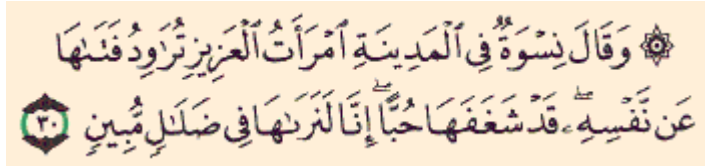 ۞ وَقَالَ نِسْوَةٌ فِى ٱلْمَدِينَةِ ٱمْرَأَتُ ٱلْعَزِيزِ تُرَٰوِدُ فَتَىٰهَا
عَن نَّفْسِهِۦ ۖ قَدْ شَغَفَهَا حُبًّا ۖ إِنَّا لَنَرَىٰهَا فِى ضَلَٰلٍ مُّبِينٍ ٣٠